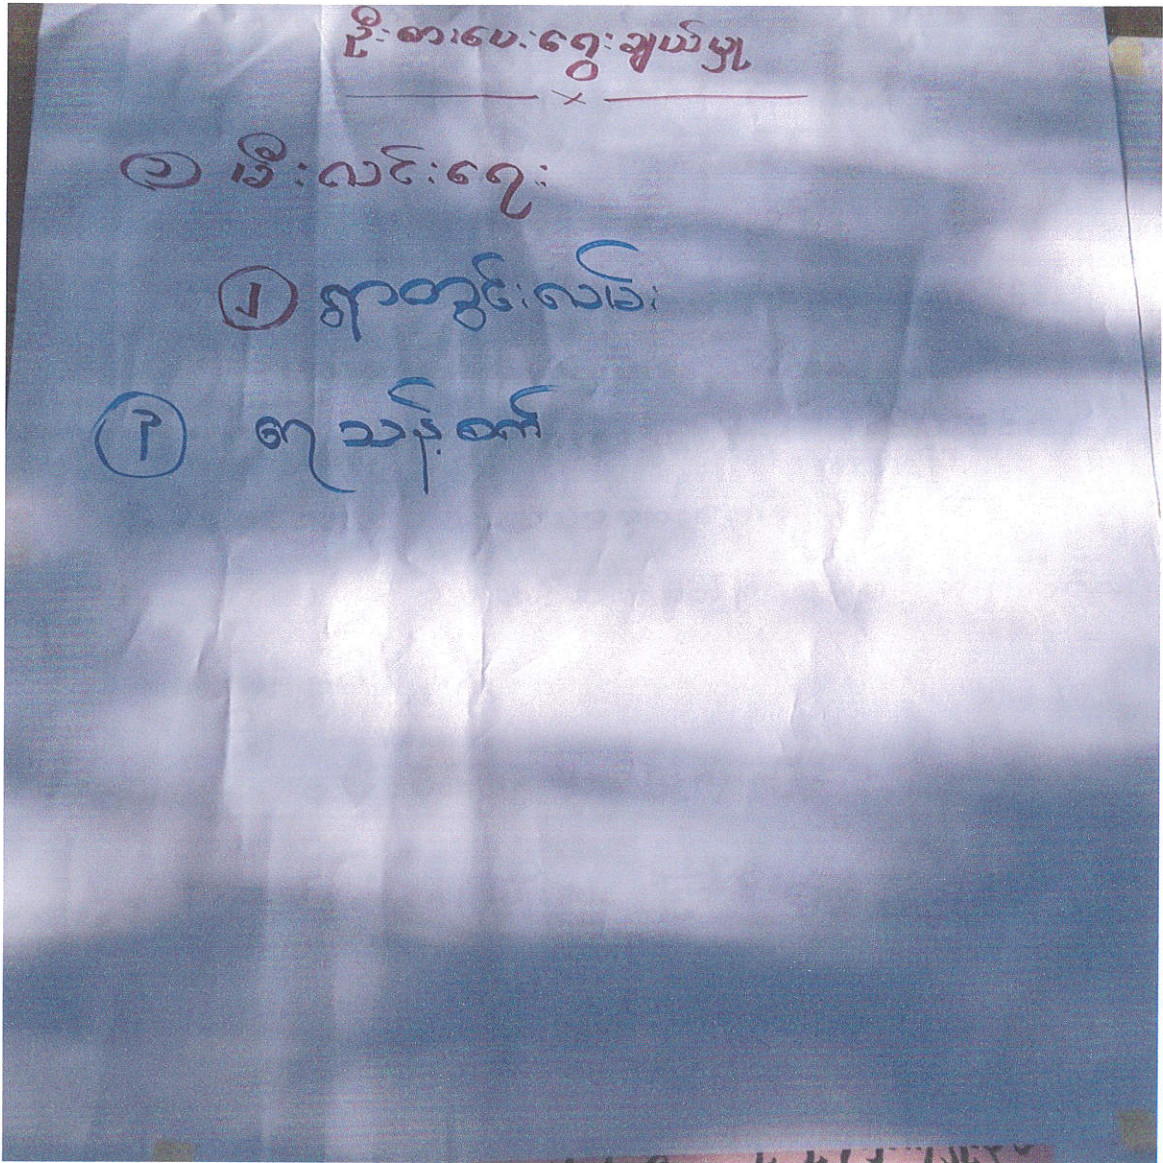 ဦးစားပေးရွေးချယ်မှု
၁ မီးလင်းရေး
၂ ရွာတွင်းလမ်း
၃ ရေသန့်စက်